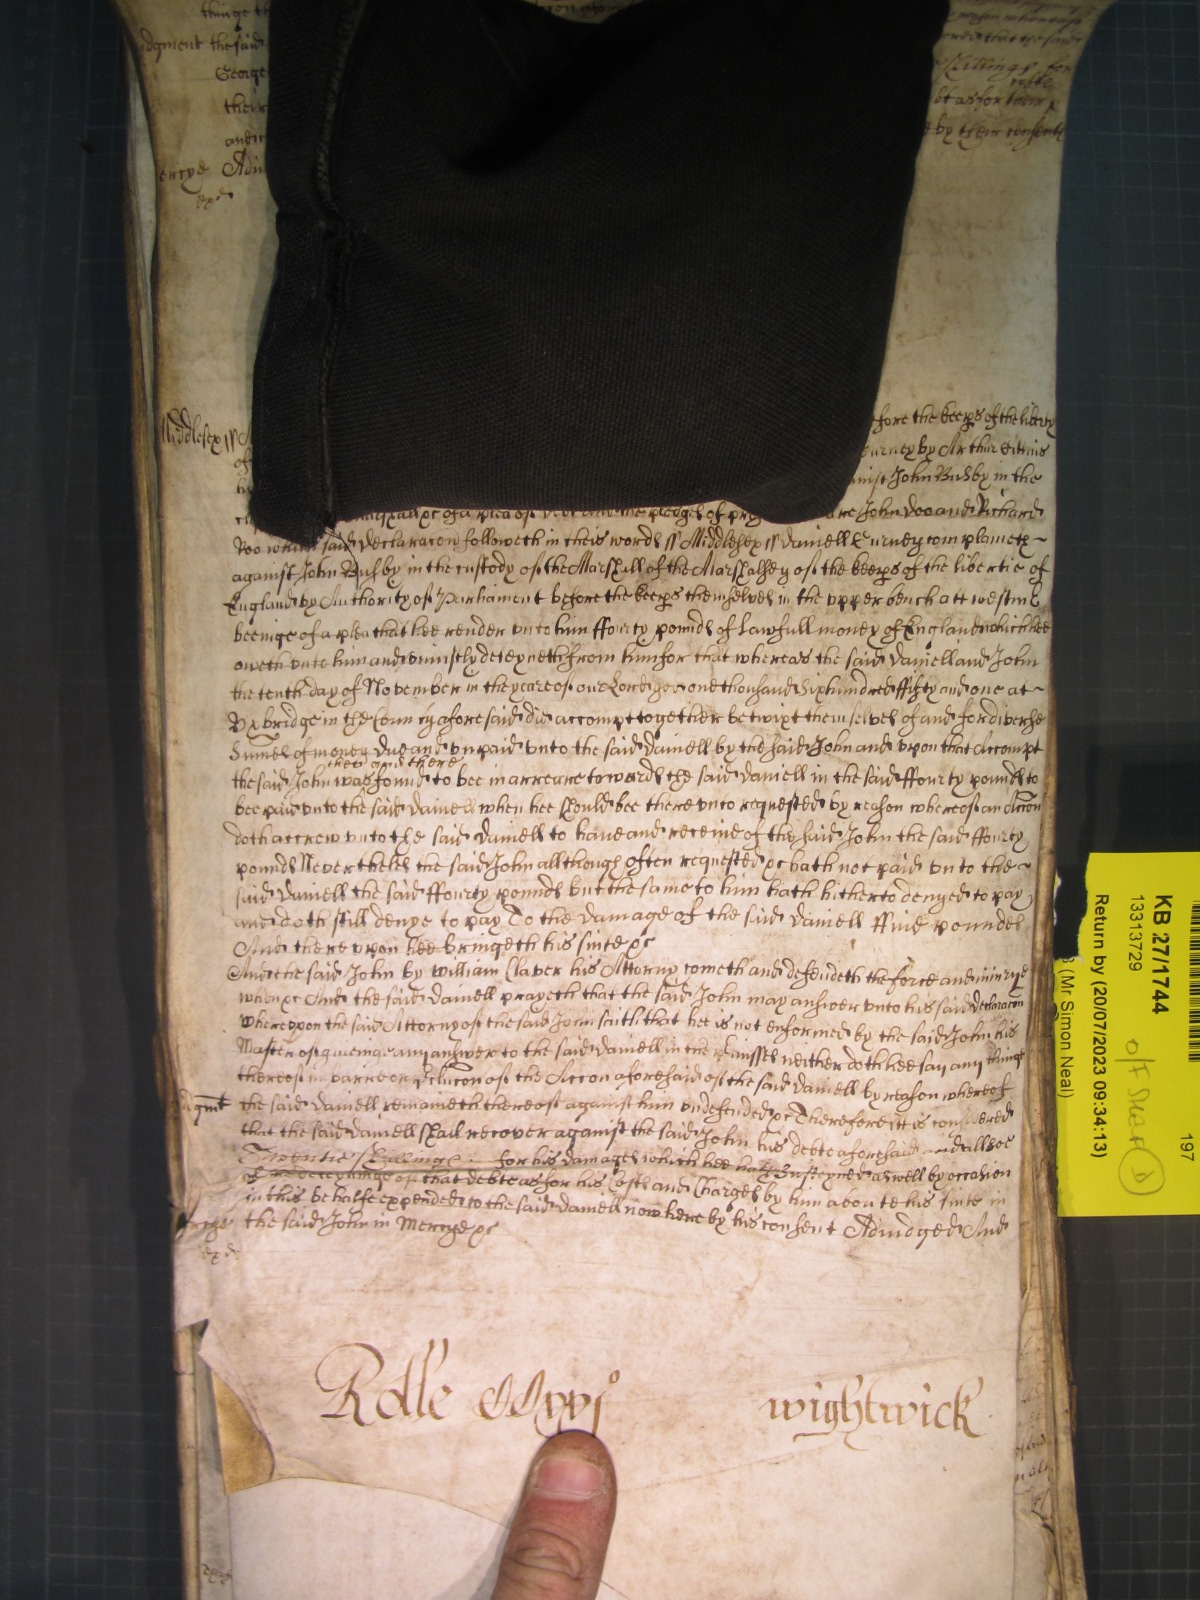 things th
udgment the said
George
their
and
ercye Adiu
shillings for
bt as for their
by their consents
Middlesex ss
efore the keeps of the liberty
urney by Arthur
inst John Busby in the
are John Doo and Richard
Roo which said declaracon followeth in theis words ss Middlesex ss Daniell Gurney complaineth
against John Busby in the custody of the Marshall of the Marshalsey of the keeps of the libertie of
England by Authority of Parliament before the keeps themselves in the vpper bench att westm
beeinge of a plea that hee render vnto him ffourty pounds of Lawfull money of England which hee
oweth vnto him and vniustly deteyneth from him for that whereas the said Daniell and John
the tenth day of November in the yeare of our Lord god one thousand Six hundred ffifty and one at
Vxbridge in the County aforesaid did accompt together betwixt themselves of and for diverse
Summes of money due and vnpaid vnto the said Daniell by the said John and vpon that Accompt
then and there
the said John was found to bee in arreare towards the said Daniell in the said ffourty pounds to
bee paid vnto the said Daniell when hee should bee therevnto requested by reason whereof an Accon
doth accrew vnto the said Daniell to have and receive of the said John the said ffourty
pounds Neverthelesse the said John allthough often requested &c hath not paid vnto the
said Daniell the said ffourty pounds but the same to him hath hitherto denyed to pay
and doth still denye to pay To the damage of the said Daniell ffive pounds
And therevpon hee bringeth his suite &c
And the said John by William Claver his Attorny cometh and defendeth the force and iniurye
when &c And the said Daniell prayeth that the said John may answer vnto his said declaracon
wherevpon the said Attorny of the said John saith that hee is not enformed by the said John his
Master of giueinge any answer to the said Daniell in the premisses neither doth hee say any thinge
thereof in barre or preclucon of the Accon aforesaid of the said Daniell by reason whereof
udgmt the said Daniell remaineth thereof against him vndefended &c Therefore it is considered
that the said Daniell shall recover against the said John his debt aforesaid and allsoe
Twentie shillings for his damages which hee hath susteyned aswell by occasion
of deteyninge of that debt as for his costs and Charges by him about his suite in
in this behalfe expended to the said Daniell now here by his consent Adiudged And
mercye the said John in Mercye &c
Rolle CCxxj°
wightwick
KB 27/1744
13313729
Return by (20/07/2023 09:34:13)
(Mr Simon Neal)
197